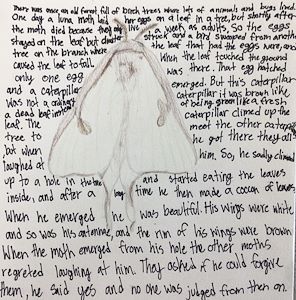 There was once an old forest full of birch trees where lots of animals and bugs lived.
One day a luna moth laid her eggs on a leaf in a tree, but shortly after
the moth died because they only live a week as adults. So the eggs
stayed on the leaf but disaster struck and a bird swooped from another
tree on the branch where the leaf that had the eggs were and
caused the leaf to fall. When the leaf touched the ground
only one egg was there. That egg hatched
and a caterpillar emerged. But this caterpillar
was not a ordinary caterpillar it was brown like
a dead leaf instead of being green like a fresh
leaf. The caterpillar climed up the
tree to meet the other caterpillars
but when he got there they all
laughed at him. So, he sadly climbed
up to a hole in the tree and started eating the leaves
inside, and after a long time he then made a cocoon of leaves.
When he emerged he was beautiful. His wings were white
and so was his antennae, and the rim of his wings were brown
When the moth emerged from his hole the other moths
regreted laughing at him. They asked if he could forgive
them, he said yes and no one was judged from then on.